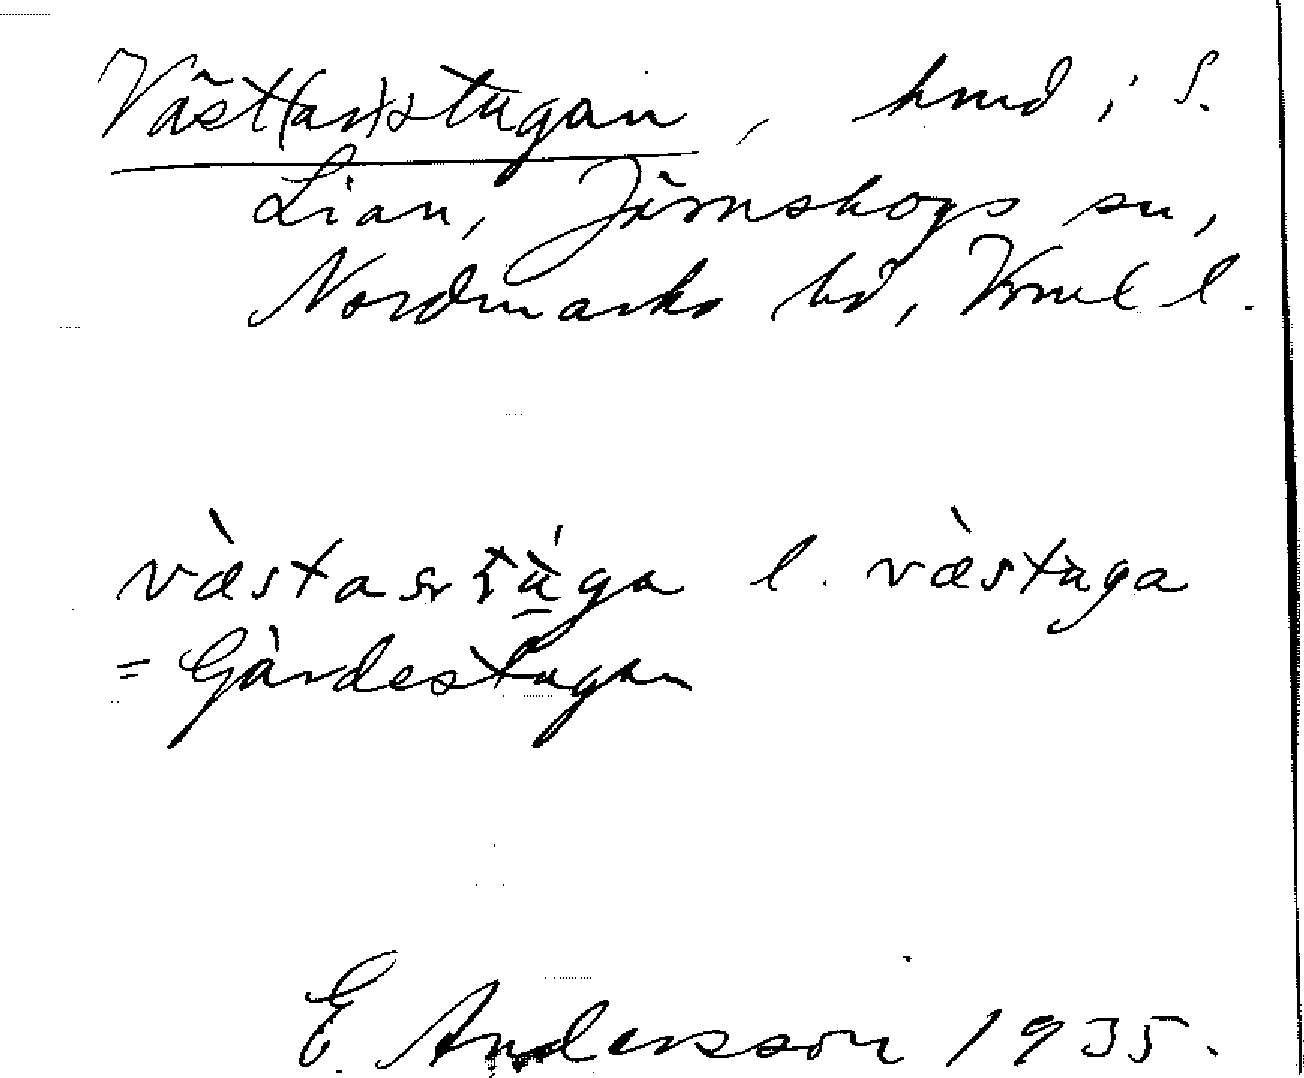 Väst(an)stugan, hmd i S.
Lian, Järnskogs sn,
Nordmarks hd, Vrml l.
væ̀sta l. væ̀stuga
= Gärdestugan
E. Andersson 1935.